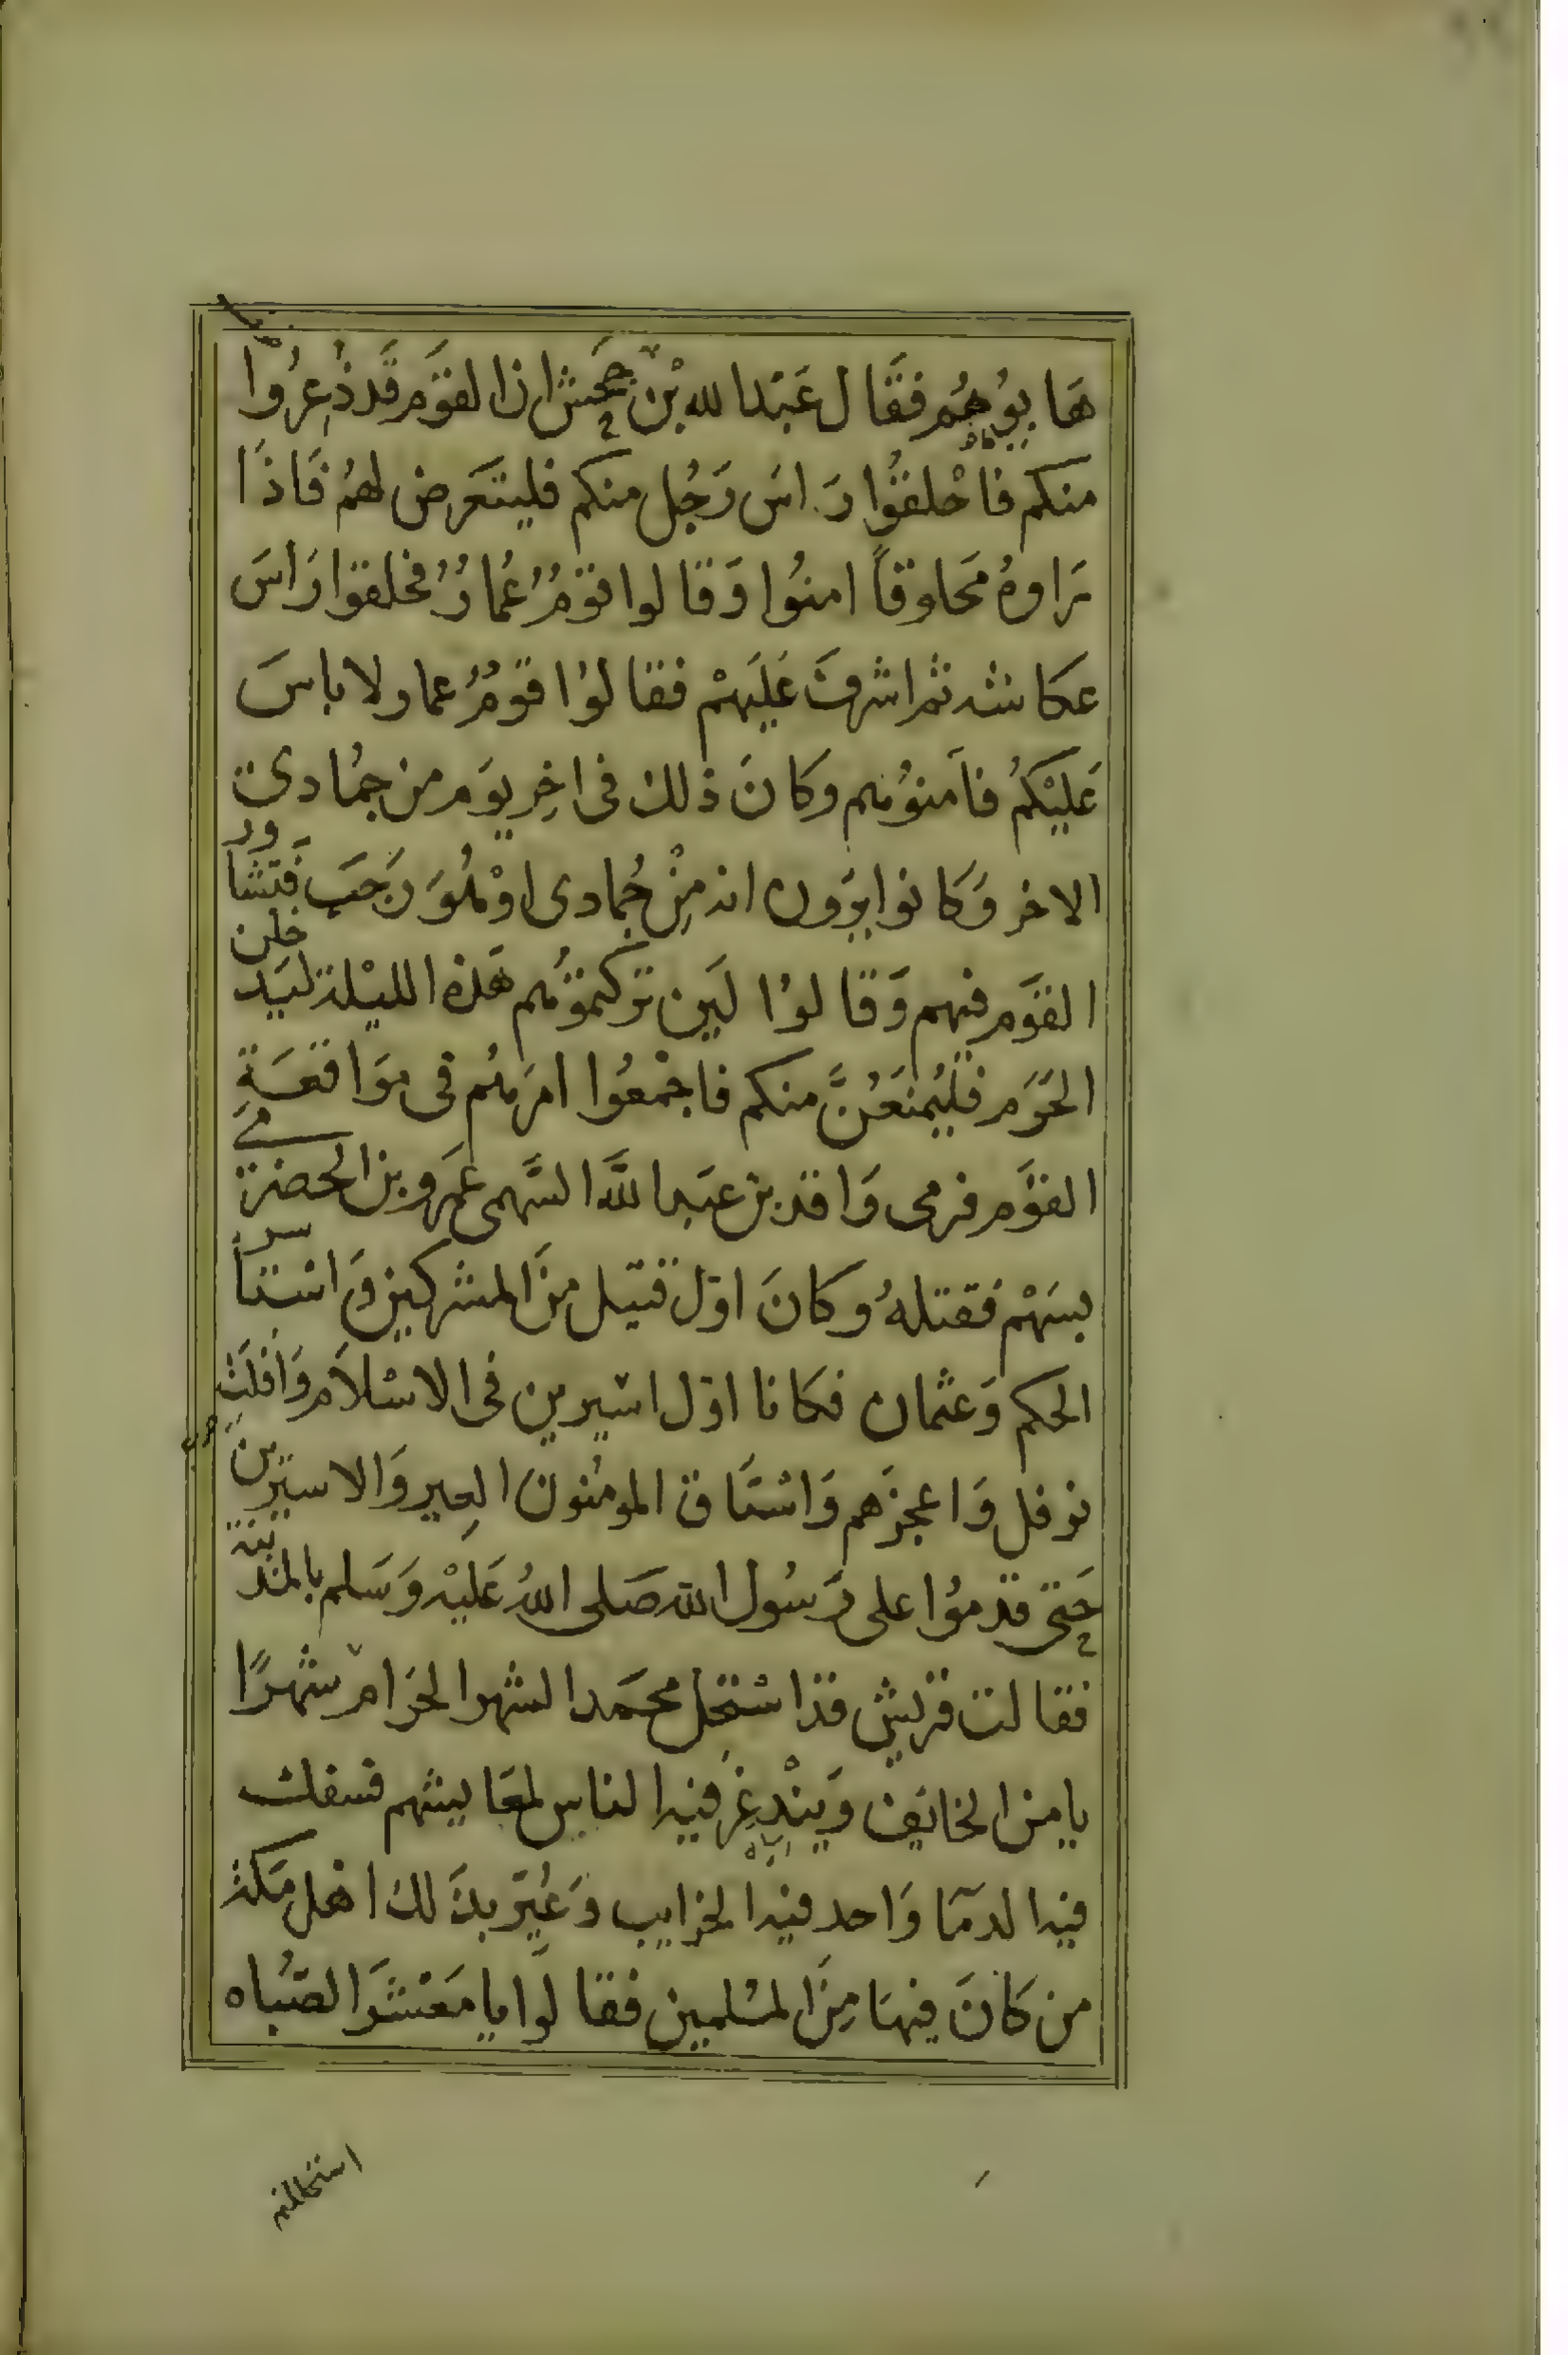 هَابُوهُم فقَال عَبْد الله بْن جَحش اذا القوَم قَد ذُعرُوا
منكم فاحْلقُوا رَاسَ رَجُل منكم فليتعَرض لهمُ فَاذَا
رَاوهُ مَحلوقاً امنُوا وَقالوا قومُ عُمارُ فحلقوا رَاسَ
عكاشه ثم اشرفَ عَلَيهمْ فقالوُا قومُ عمار ولا باسَ
عَليْكمُ فاَمنوُهم وكانَ ذلك فى اخِر يوَم من جمُادى
الاخر وَكانوا يرَون انه مِنْ جُمادى اوْ هُوَ رَجَب فتشاور
القوَم فيهم وَقالوُا لَين تركتموُهم هَذه الليْلة ليَدخلن
الحَرَم فليُمنَعُنَّ منكم فاجْمعُوا امرَهُم فى موَاقعَةِ
القوَّم فرمى وَاقد بن عبَد اللَّه السَّهمى عَمَرو بن الحضرمي
بسَهْم فقتلهُ وكانَ اول قتيل منَ المشركين وَاستاسر
الحكم وَعثمان فكانا اول اسيرين فى الاسْلاَم وَافلَت
نوفل وَاعجزَهم وَاسْتَاق المومُنونَ العِير وَالاسيرين
حَتى قدموُا على رَسُول الله صَلى اللهُ عَليْه وَسَلم بالمدينة
فقالت قريش قد اسْتحل محمَد الشهر الحرَام شهرًا
يامن الخايف وَيَنْدغِر فيه الناس لمعَايشهم فسفك
فيه الدمَا وَاحد فيه الحرايب وَعُيرَ بذَلك اهل مَكة
من كانَ فيهَا مِنَ المسْلمين فقالوَا يا مَعْشَر الصُّباه
استحللتم